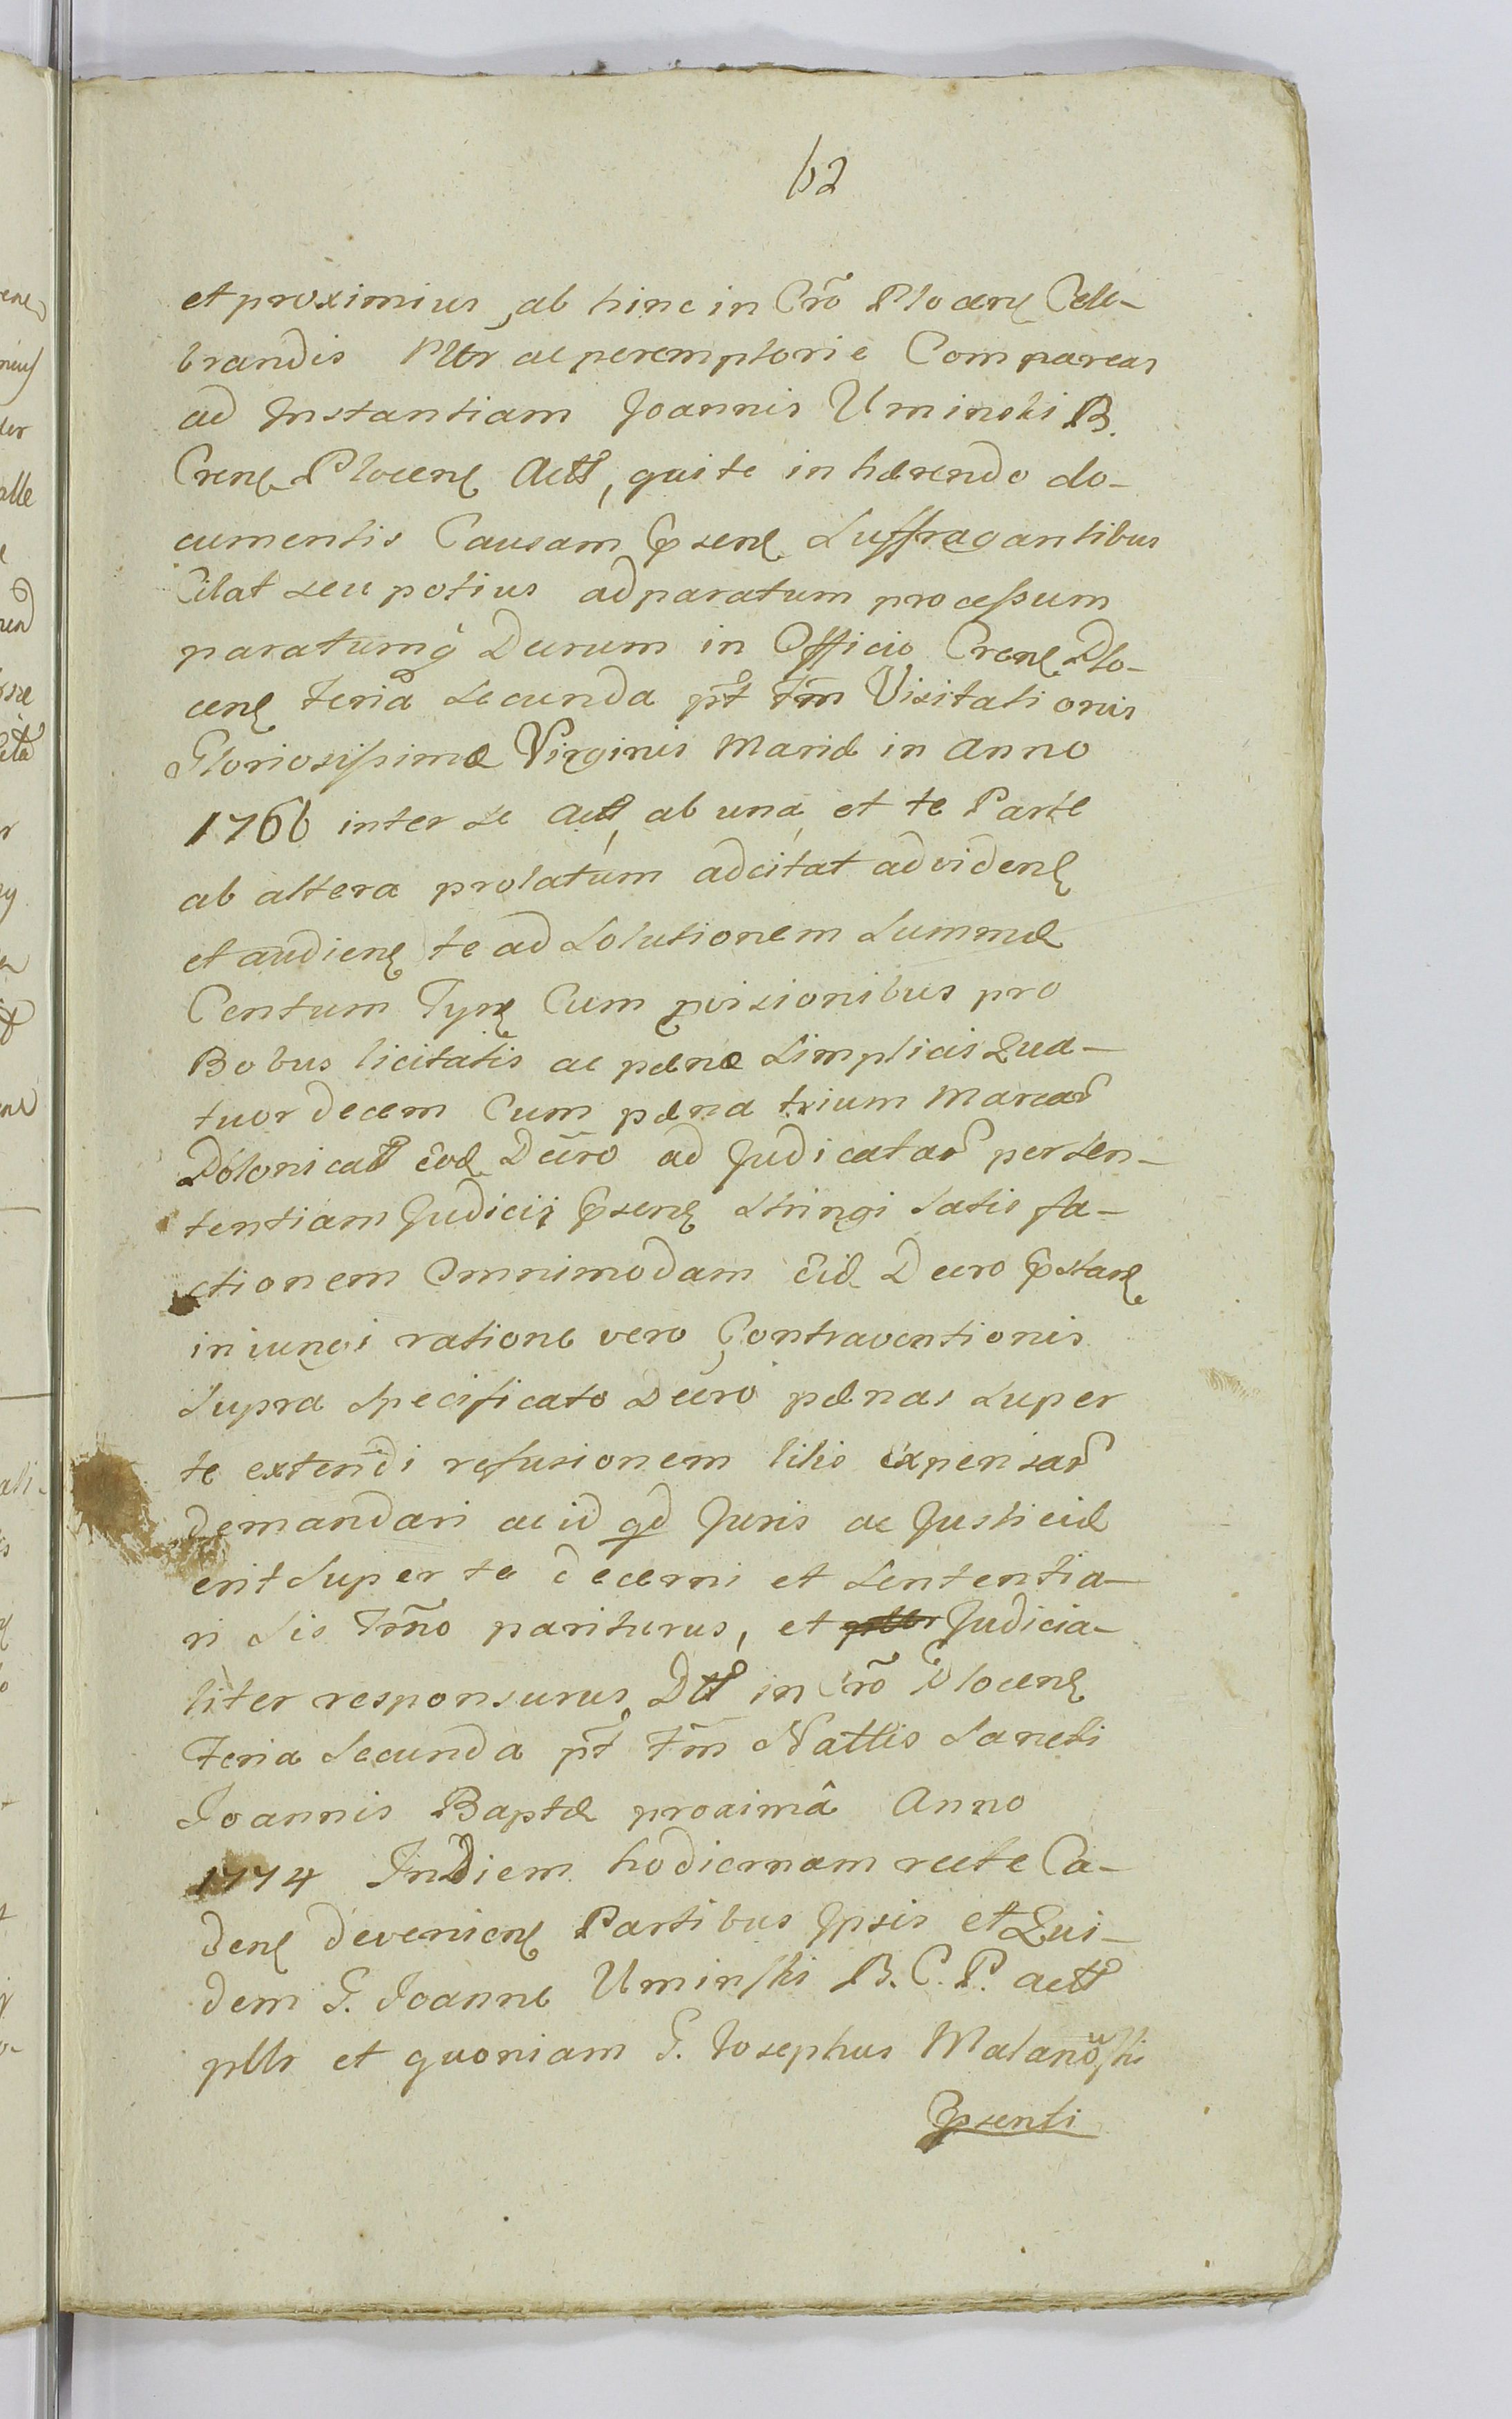 62
et proximius ab hinc in Crõ Plocen Cele-
brandis Pltr ac peremptorie Compareas
ad Instantiam Joannis Uminski B.
Cren Plocen Actt, qui te inhærendo do-
cumentis Causam Psen Suffragantibus
Citat seu potius ad paratum processum
paratumq́ Decrum in Officio Cren Plo-
cen Feria Secunda pt Fm̃ Visitationis
Gloriosissimæ Virginis Mariæ in Anno
1766 inter se Actt ab una et te Parte
ab altera prolatum adcitat ad viden
et audien te ad Solutionem Summæ
Centum Tyn Cum pvisionibus pro
Bobus licitatis ac pænæ Simplicis Qua-
tuordecem Cum pæna trium Marcar
Polonicar eod Decro ad Judicatar per Sen-
tentiam Judicij Psen Stringi Satis fa-
ctionem Omnimodam eid Decro Pstan
iniungi ratione vero Contraventionis
Supra Specificato Decro pænas Super
te extendi refusionem litis expensar
demandari ac id qd Juris ac Justiciæ
erit Super te decerni et Sententia-
ri Sis Trm̃o pariturus, et Judicia-
liter responsurus Dtt in Crõ Plocen
Feria Secunda pt Fm̃ Nattis Sancti
Joannis Baptæ proximâ Anno
1774 In Diem hodiernam recte Ca-
den devenien Partibus Ipsis et Qui-
dem G. Joanne Uminski B. C. P. Actt
pltr et quoniam G. Josephus Malanowski
Psenti